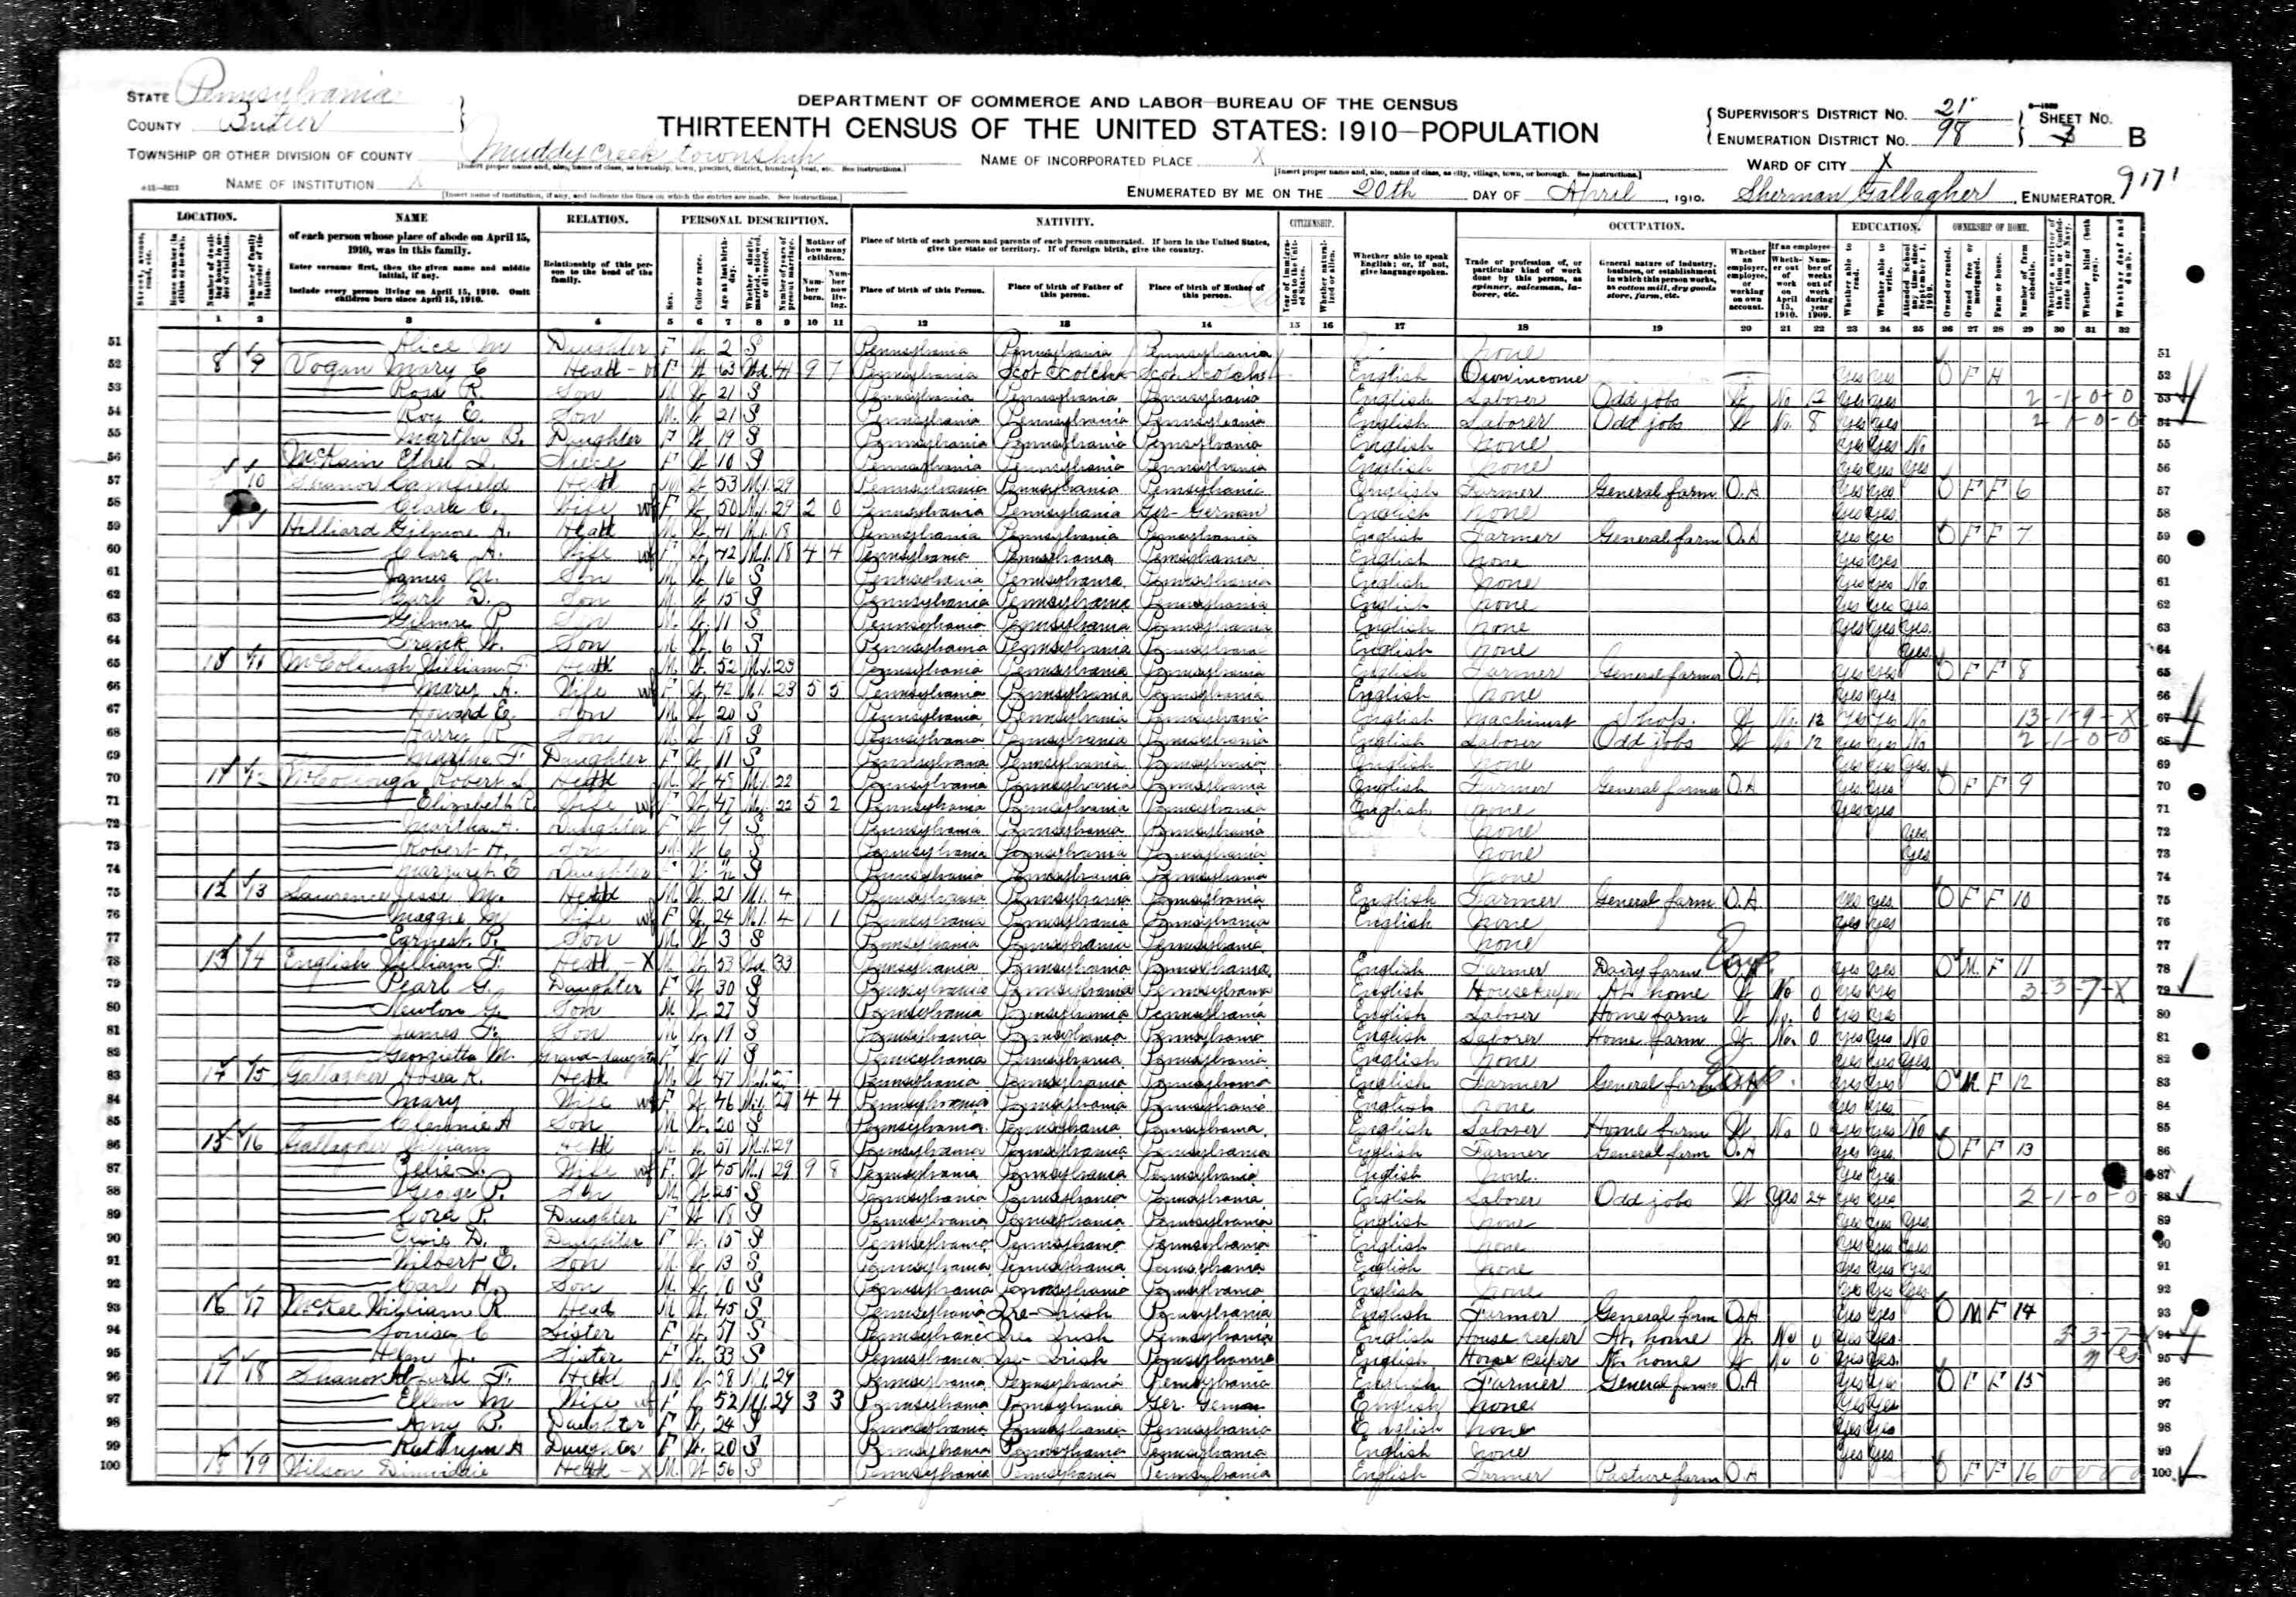 STATE Pennsylvania
COUNTY Butler
TOWNSHIP OR OTHER DIVISION OF COUNTY Muddycreek township
[Insert proper name and, also, name of class, as township, town, precinct, district, hundred, beat, etc. See instructions.]
NAME OF INSTITUTION X
[Insert name of institution, if any, and indicate the lines on which the entries are made. See instructions.]
DEPARTMENT OF COMMERCE AND LABOR—BUREAU OF THE CENSUS
THIRTEENTH CENSUS OF THE UNITED STATES: 1910—POPULATION
NAME OF INCORPORATED PLACE X
[Insert proper name and, also, name of class, as city, village, town, or borough. See instructions.]
ENUMERATED BY ME ON THE 20th DAY OF April, 1910. Sherman Gallagher, ENUMERATOR.
SUPERVISOR'S DISTRICT No. 21
ENUMERATION DISTRICT No. 98
SHEET No. B
WARD OF CITY X
LOCATION. NAME RELATION. PERSONAL DESCRIPTION. NATIVITY. CITIZENSHIP. OCCUPATION. EDUCATION. OWNERSHIP OF HOME.
of each person whose place of abode on April 15, 1910, was in this family.
Enter surname first, then the given name and middle initial, if any.
Include every person living on April 15, 1910. Omit children born since April 15, 1910.
Relationship of this person to the head of the family.
Place of birth of each person and parents of each person enumerated. If born in the United States, give the state or territory. If of foreign birth, give the country.
Place of birth of this Person. Place of birth of Father of this person. Place of birth of Mother of this person.
Whether able to speak English; or, if not, give language spoken.
Trade or profession of, or particular kind of work done by this person, as spinner, salesman, laborer, etc.
General nature of industry, business, or establishment in which this person works, as cotton mill, dry goods store, farm, etc.
Whether an employer, employee, or working on own account.
1 2 3 4 5 6 7 8 9 10 11 12 13 14 15 16 17 18 19 20 21 22 23 24 25 26 27 28 29 30 31 32
51 Alice M Daughter F W 2 S Pennsylvania Pennsylvania Pennsylvania none
52 8 9 Vogan Mary E Head F W 63 Wd 41 9 7 Pennsylvania Scot Scotch Scot Scotch English Own income yes yes O F H
53 Ross R. Son M W 21 S Pennsylvania Pennsylvania Pennsylvania English Laborer Odd jobs W No 12 yes yes 2-1-0-0
54 Roy E. Son M W 21 S Pennsylvania Pennsylvania Pennsylvania English Laborer Odd jobs W No 8 yes yes 2-1-0-0
55 Martha B. Daughter F W 19 S Pennsylvania Pennsylvania Pennsylvania English none yes yes No
56 McKain Ethel I. Niece F W 10 S Pennsylvania Pennsylvania Pennsylvania English none yes yes yes
57 10 Shanor Camfield Head M W 53 M1 29 Pennsylvania Pennsylvania Pennsylvania English Farmer General farm O.A yes yes O F F 6
58 Clara C. Wife F W 50 M1 29 2 0 Pennsylvania Pennsylvania Ger-German English none yes yes
59 Hilliard Gilmore A. Head M W 41 M1 18 Pennsylvania Pennsylvania Pennsylvania English Farmer General farm O.A yes yes O F F 7
60 Clara A. Wife F W 42 M1 18 4 4 Pennsylvania Pennsylvania Pennsylvania English none yes yes
61 James M. Son M W 16 S Pennsylvania Pennsylvania Pennsylvania English none yes yes No
62 Earl D. Son M W 15 S Pennsylvania Pennsylvania Pennsylvania English none yes yes yes
63 Gilmore P. Son M W 11 S Pennsylvania Pennsylvania Pennsylvania English none yes yes yes
64 Frank W. Son M W 6 S Pennsylvania Pennsylvania Pennsylvania English none yes
65 10 11 McColough William F. Head M W 52 M1 23 Pennsylvania Pennsylvania Pennsylvania English Farmer General farmer O.A yes yes O F F 8
66 Mary A. Wife F W 42 M1 23 5 5 Pennsylvania Pennsylvania Pennsylvania English none yes yes
67 Howard E. Son M W 20 S Pennsylvania Pennsylvania Pennsylvania English Machinist Shops W No 12 yes yes No 13-1-9-X
68 Harry R. Son M W 18 S Pennsylvania Pennsylvania Pennsylvania English Laborer Odd jobs W No 12 yes yes No 2-1-0-0
69 Martha F. Daughter F W 11 S Pennsylvania Pennsylvania Pennsylvania English none yes yes yes
70 11 12 McColough Robert S. Head M W 48 M1 22 Pennsylvania Pennsylvania Pennsylvania English Farmer General farmer O.A yes yes O F F 9
71 Elizabeth R. Wife F W 47 M1 22 5 2 Pennsylvania Pennsylvania Pennsylvania English none yes yes
72 Martha A. Daughter F W 9 S Pennsylvania Pennsylvania Pennsylvania none yes
73 Robert H. Son M W 6 S Pennsylvania Pennsylvania Pennsylvania none yes
74 Margaret E Daughter S Pennsylvania Pennsylvania Pennsylvania none
75 12 13 Lawrence Jesse M. Head M W 21 M1 4 Pennsylvania Pennsylvania Pennsylvania English Farmer General farm O.A yes yes O F F 10
76 Maggie M Wife F W 24 M1 4 1 1 Pennsylvania Pennsylvania Pennsylvania English none yes yes
77 Earnest P. Son M W 3 S Pennsylvania Pennsylvania Pennsylvania none
78 13 14 English William F. Head X M W 53 Wd 33 Pennsylvania Pennsylvania Pennsylvania English Farmer Dairy farm yes yes O M F 11
79 Pearl G. Daughter F W 30 S Pennsylvania Pennsylvania Pennsylvania English Housekeeper At home W No 0 yes yes 3-3-7-X
80 Newton G Son M W 27 S Pennsylvania Pennsylvania Pennsylvania English Laborer Home farm W No 0 yes yes
81 James F. Son M W 19 S Pennsylvania Pennsylvania Pennsylvania English Laborer Home farm W No 0 yes yes No
82 Georgietta M. Grand-daughter F W 11 S Pennsylvania Pennsylvania Pennsylvania English none yes yes yes
83 14 15 Gallagher Hosea K. Head M W 47 M1 Pennsylvania Pennsylvania Pennsylvania English Farmer General farm yes yes O M F 12
84 Mary Wife F W 46 M1 27 4 4 Pennsylvania Pennsylvania Pennsylvania English none yes yes
85 Clennie A Son M W 20 S Pennsylvania Pennsylvania Pennsylvania English Laborer Home farm W No 0 yes yes No
86 15 16 Gallagher William Head M W 51 M1 29 Pennsylvania Pennsylvania Pennsylvania English Farmer General farm O.A yes yes O F F 13
87 Wife F W 45 M1 29 9 8 Pennsylvania Pennsylvania Pennsylvania English none yes yes
88 George P. Son M W 25 S Pennsylvania Pennsylvania Pennsylvania English Laborer Odd jobs W yes 24 yes yes 2-1-0-0
89 Cora P. Daughter F W 18 S Pennsylvania Pennsylvania Pennsylvania English none yes yes yes
90 Daughter F W 15 S Pennsylvania Pennsylvania Pennsylvania English none yes yes yes
91 Wilbert E. Son M W 13 S Pennsylvania Pennsylvania Pennsylvania English none yes yes yes
92 Carl H. Son M W 10 S Pennsylvania Pennsylvania Pennsylvania English none yes yes yes
93 16 17 McKee William R Head M W 45 S Pennsylvania Ire-Irish Pennsylvania English Farmer General farm O.A yes yes O M F 14
94 Louisa C Sister F W 57 S Pennsylvania Ire Irish Pennsylvania English House keeper At home W No 0 yes yes 3-3-7-X
95 Sister F W 33 S Pennsylvania Ire-Irish Pennsylvania English House keeper At home W No 0 yes yes
96 17 18 Shanor F. Head M W 58 M1 29 Pennsylvania Pennsylvania Pennsylvania English Farmer General farm O.A yes yes O F F 15
97 Ellen M Wife F W 52 M1 29 3 3 Pennsylvania Pennsylvania Ger. German English none yes yes
98 Amy B. Daughter F W 24 S Pennsylvania Pennsylvania Pennsylvania English none yes yes
99 Kathryn A Daughter F W 20 S Pennsylvania Pennsylvania Pennsylvania English none yes yes
100 18 19 Wilson Dinwidie Head X M W 56 S Pennsylvania Pennsylvania Pennsylvania English Farmer Pasture farm O.A yes O F F 16 0 0 0 0